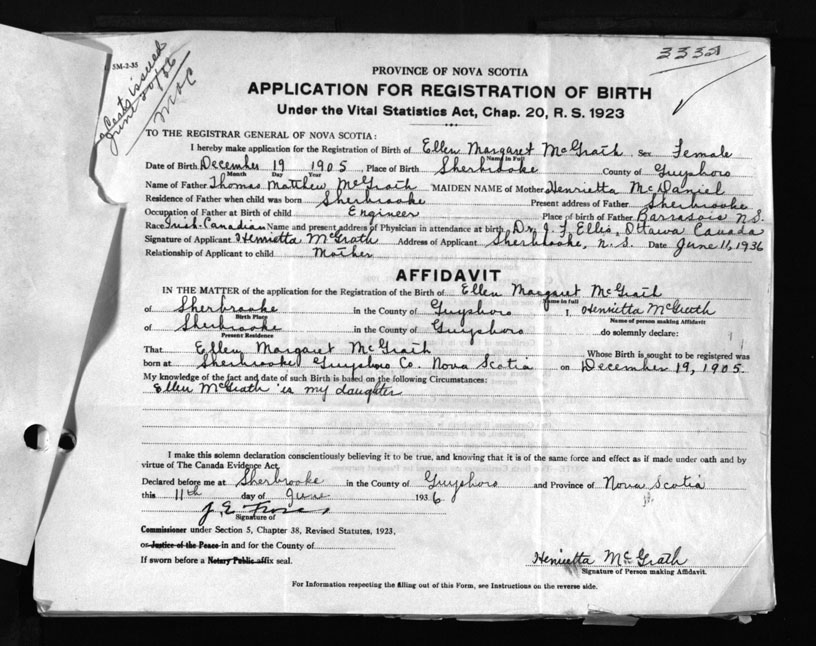 5M-2-35
Certs issued
June 20/36
3332
PROVINCE OF NOVA SCOTIA
APPLICATION FOR REGISTRATION OF BIRTH
Under the Vital Statistics Act, Chap. 20, R. S. 1923
TO THE REGISTRAR GENERAL OF NOVA SCOTIA:
I hereby make application for the Registration of Birth of Ellen Margaret McGrath Sex Female
Name in Full
Date of Birth December 19 1905, Place of Birth Sherbrooke County of Guysboro
Month Day Year
Name of Father Thomas Matthew McGrath MAIDEN NAME of Mother Henrietta McDaniel
Residence of Father when child was born Sherbrooke Present address of Father Sherbrooke
Occupation of Father at Birth of child Engineer Place of birth of Father Barrasois N.S.
Race Irish-Canadian Name and present address of Physician in attendance at birth Dr. J. F. Ellis, Ottawa Canada
Signature of Applicant Henrietta McGrath Address of Applicant Sherbrooke, N.S. Date June 11, 1936
Relationship of Applicant to child Mother
AFFIDAVIT
IN THE MATTER of the application for the Registration of the Birth of Ellen Margaret McGrath
Name in full
of Sherbrooke in the County of Guysboro I, Henrietta McGrath
Birth Place Name of person making Affidavit
of Sherbrooke in the County of Guysboro do solemnly declare:
Present Residence
That Ellen Margaret McGrath Whose Birth is sought to be registered was
born at Sherbrooke Guysboro Co. Nova Scotia on December 19, 1905.
My knowledge of the fact and date of such Birth is based on the following Circumstances:
Ellen McGrath is my daughter
I make this solemn declaration conscientiously believing it to be true, and knowing that it is of the same force and effect as if made under oath and by
virtue of The Canada Evidence Act.
Declared before me at Sherbrooke in the County of Guysboro and Province of Nova Scotia
this 11th day of June 1936
Signature of
Commissioner under Section 5, Chapter 38, Revised Statutes, 1923,
or Justice of the Peace in and for the County of
If sworn before a Notary Public affix seal.
Henrietta McGrath
Signature of Person making Affidavit.
For Information respecting the filling out of this Form, see Instructions on the reverse side.